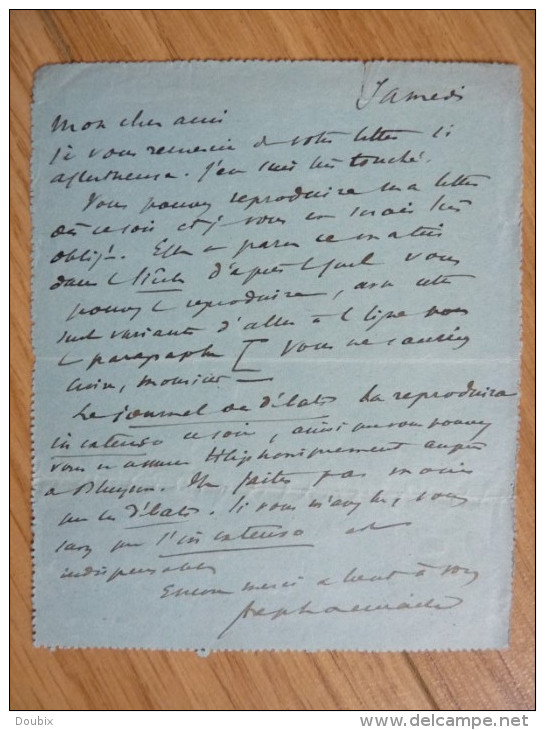 Samedi
Mon cher ami
Je vous remercie de votre lettre si
affectueuse. J'en suis très touché.
Vous pouvez reproduire ma lettre
où ce soit et je vous en serais très
obligé. Elle a paru ce matin
dans le Siècle d'après lequel vous
pouvez le reproduire, avec cette
seule variante d'aller à la ligne pour
le paragraphe [ Vous ne sauriez
croire, monsieur —
Le journal des Débats la reproduira
in extenso ce soir, ainsi que vous pouvez
vous en assurer téléphoniquement auprès
de faites pas moins
que les Débats. Si vous m'avez lu, vous
savez que l'in extenso est
indispensable
Encore merci et bien à vous
Doubix
www.delcampe.net